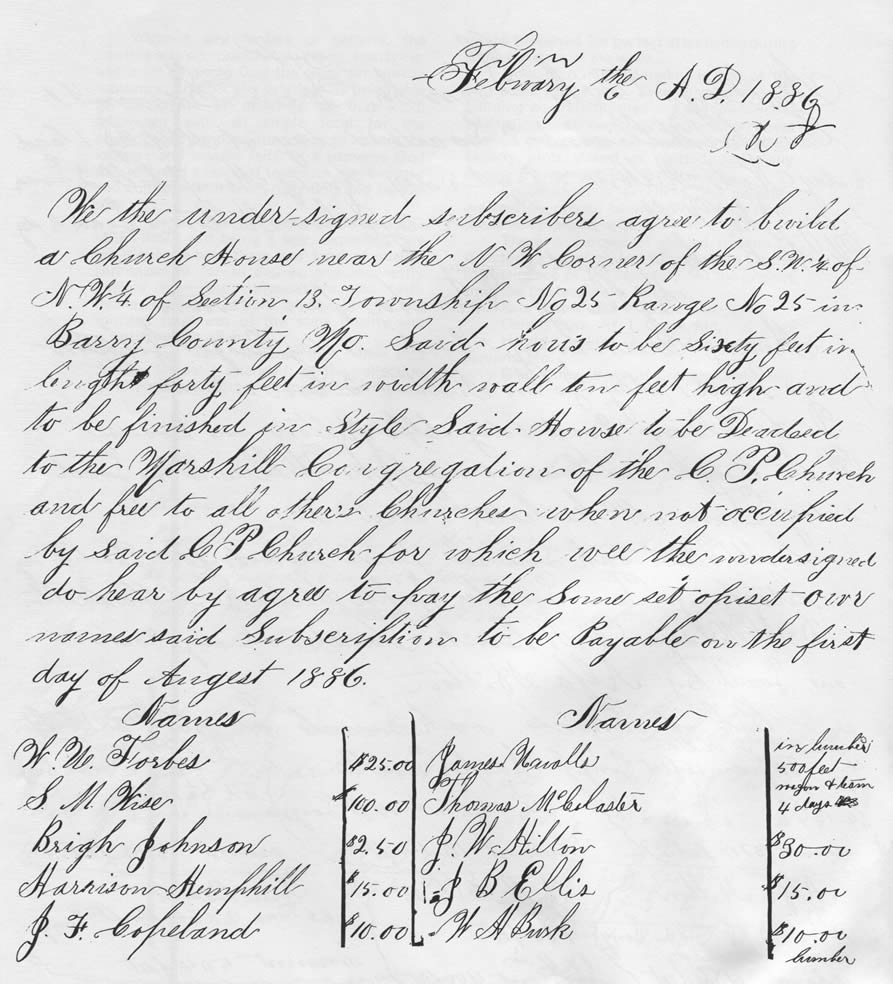 February the 6 A.D. 1886
We the under-signed subscribers agree to bwild
a Church House near the N W Corner of the S.W. 1/4 of
N.W. 1/4 of Section 13. Township No 25 Range No 25 in
Barry County Mo. Said hous to be Sixty feet in
length forty feet in width wall ten feet high and
to be finished in Style Said House to be Deadsed
to the Marshill Congregation of the C. P. Church
and free to all other's Churches when not occiupied
by Said C P Church for which wee the undersigned
do hear by agree to pay the Some set opiset owr
names said Subscription to be Payable on the first
day of Angest 1886.
Names Names
W. W. Forbes $25.00 James in lumber 500 feet
S M Wise $100.00 Thomas McColaster wagon & team 4 days
Brigh Johnson $2.50 J. W. Hilton $30.00
Harrison Hemphill $15.00 J B Ellis $15.00
J. F. Copeland $10.00 W H Busk $10.00
lumber